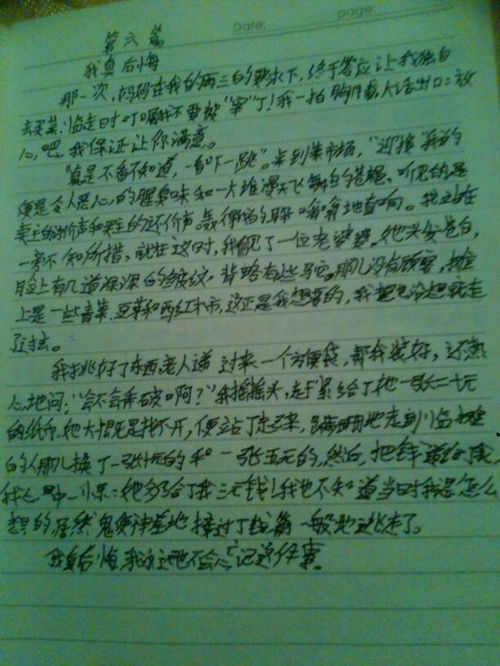 Date: page:
第六篇
我真后悔
那一次，妈妈在我的再三的要求下，终于答应让我独自
去买菜，临走时叮嘱我不要被"宰"了！我一拍胸脯，大话出口：放
心吧，我保证让你满意。
"真是不看不知道，一看吓一跳"。来到菜市场，"迎接"我的
便是令人恶心的腥臭味和一片
卖主的讨价声和买主的还价声 地直响。我站在
一旁不知所措，就在这时，我看见了一位老婆婆。她头发苍白，
脸上有几道深深的皱纹，背略有些驼。那儿没有顾客，摊
上是一些青菜、豆芽和西红柿，这正是我想要的，我 走
了过去。
我挑好了东西，老人递过来一个方便袋，帮我装好，还热
心地问："会不会弄破啊？"我摇摇头，赶紧给了她一张二十元
的纸币，她大概是找不开，便站了起来，蹒跚地走到临摊
的人那儿换了一张十元的和一张五元的，然后，把钱递给了我，
我心里一惊：她多给了我三元钱！我也不知道当时我是怎么
想的，居然鬼使神差地接过了钱，箭一般地逃走了。
我真后悔，我永远也不会忘记这件事。